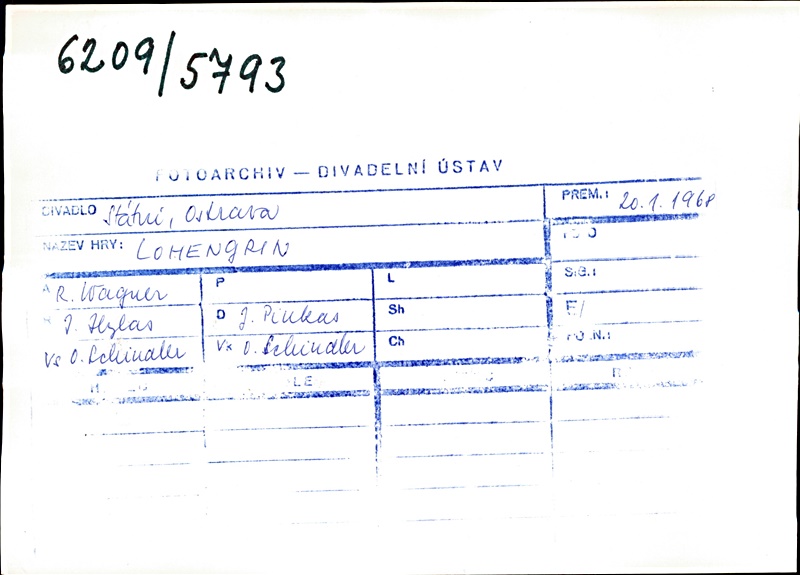 6209/5793
FOTOARCHIV — DIVADELNÍ ÚSTAV
DIVADLO Státní, Ostrava
PREM.: 20.1.1968
NÁZEV HRY: LOHENGRIN
FOTO
A R. Wagner
P
L
SIG.:
R J. Hezlas
D J. Pinkas
Sh
E/
Vs O. Schindler
Vs O. Schindler
Ch
PO